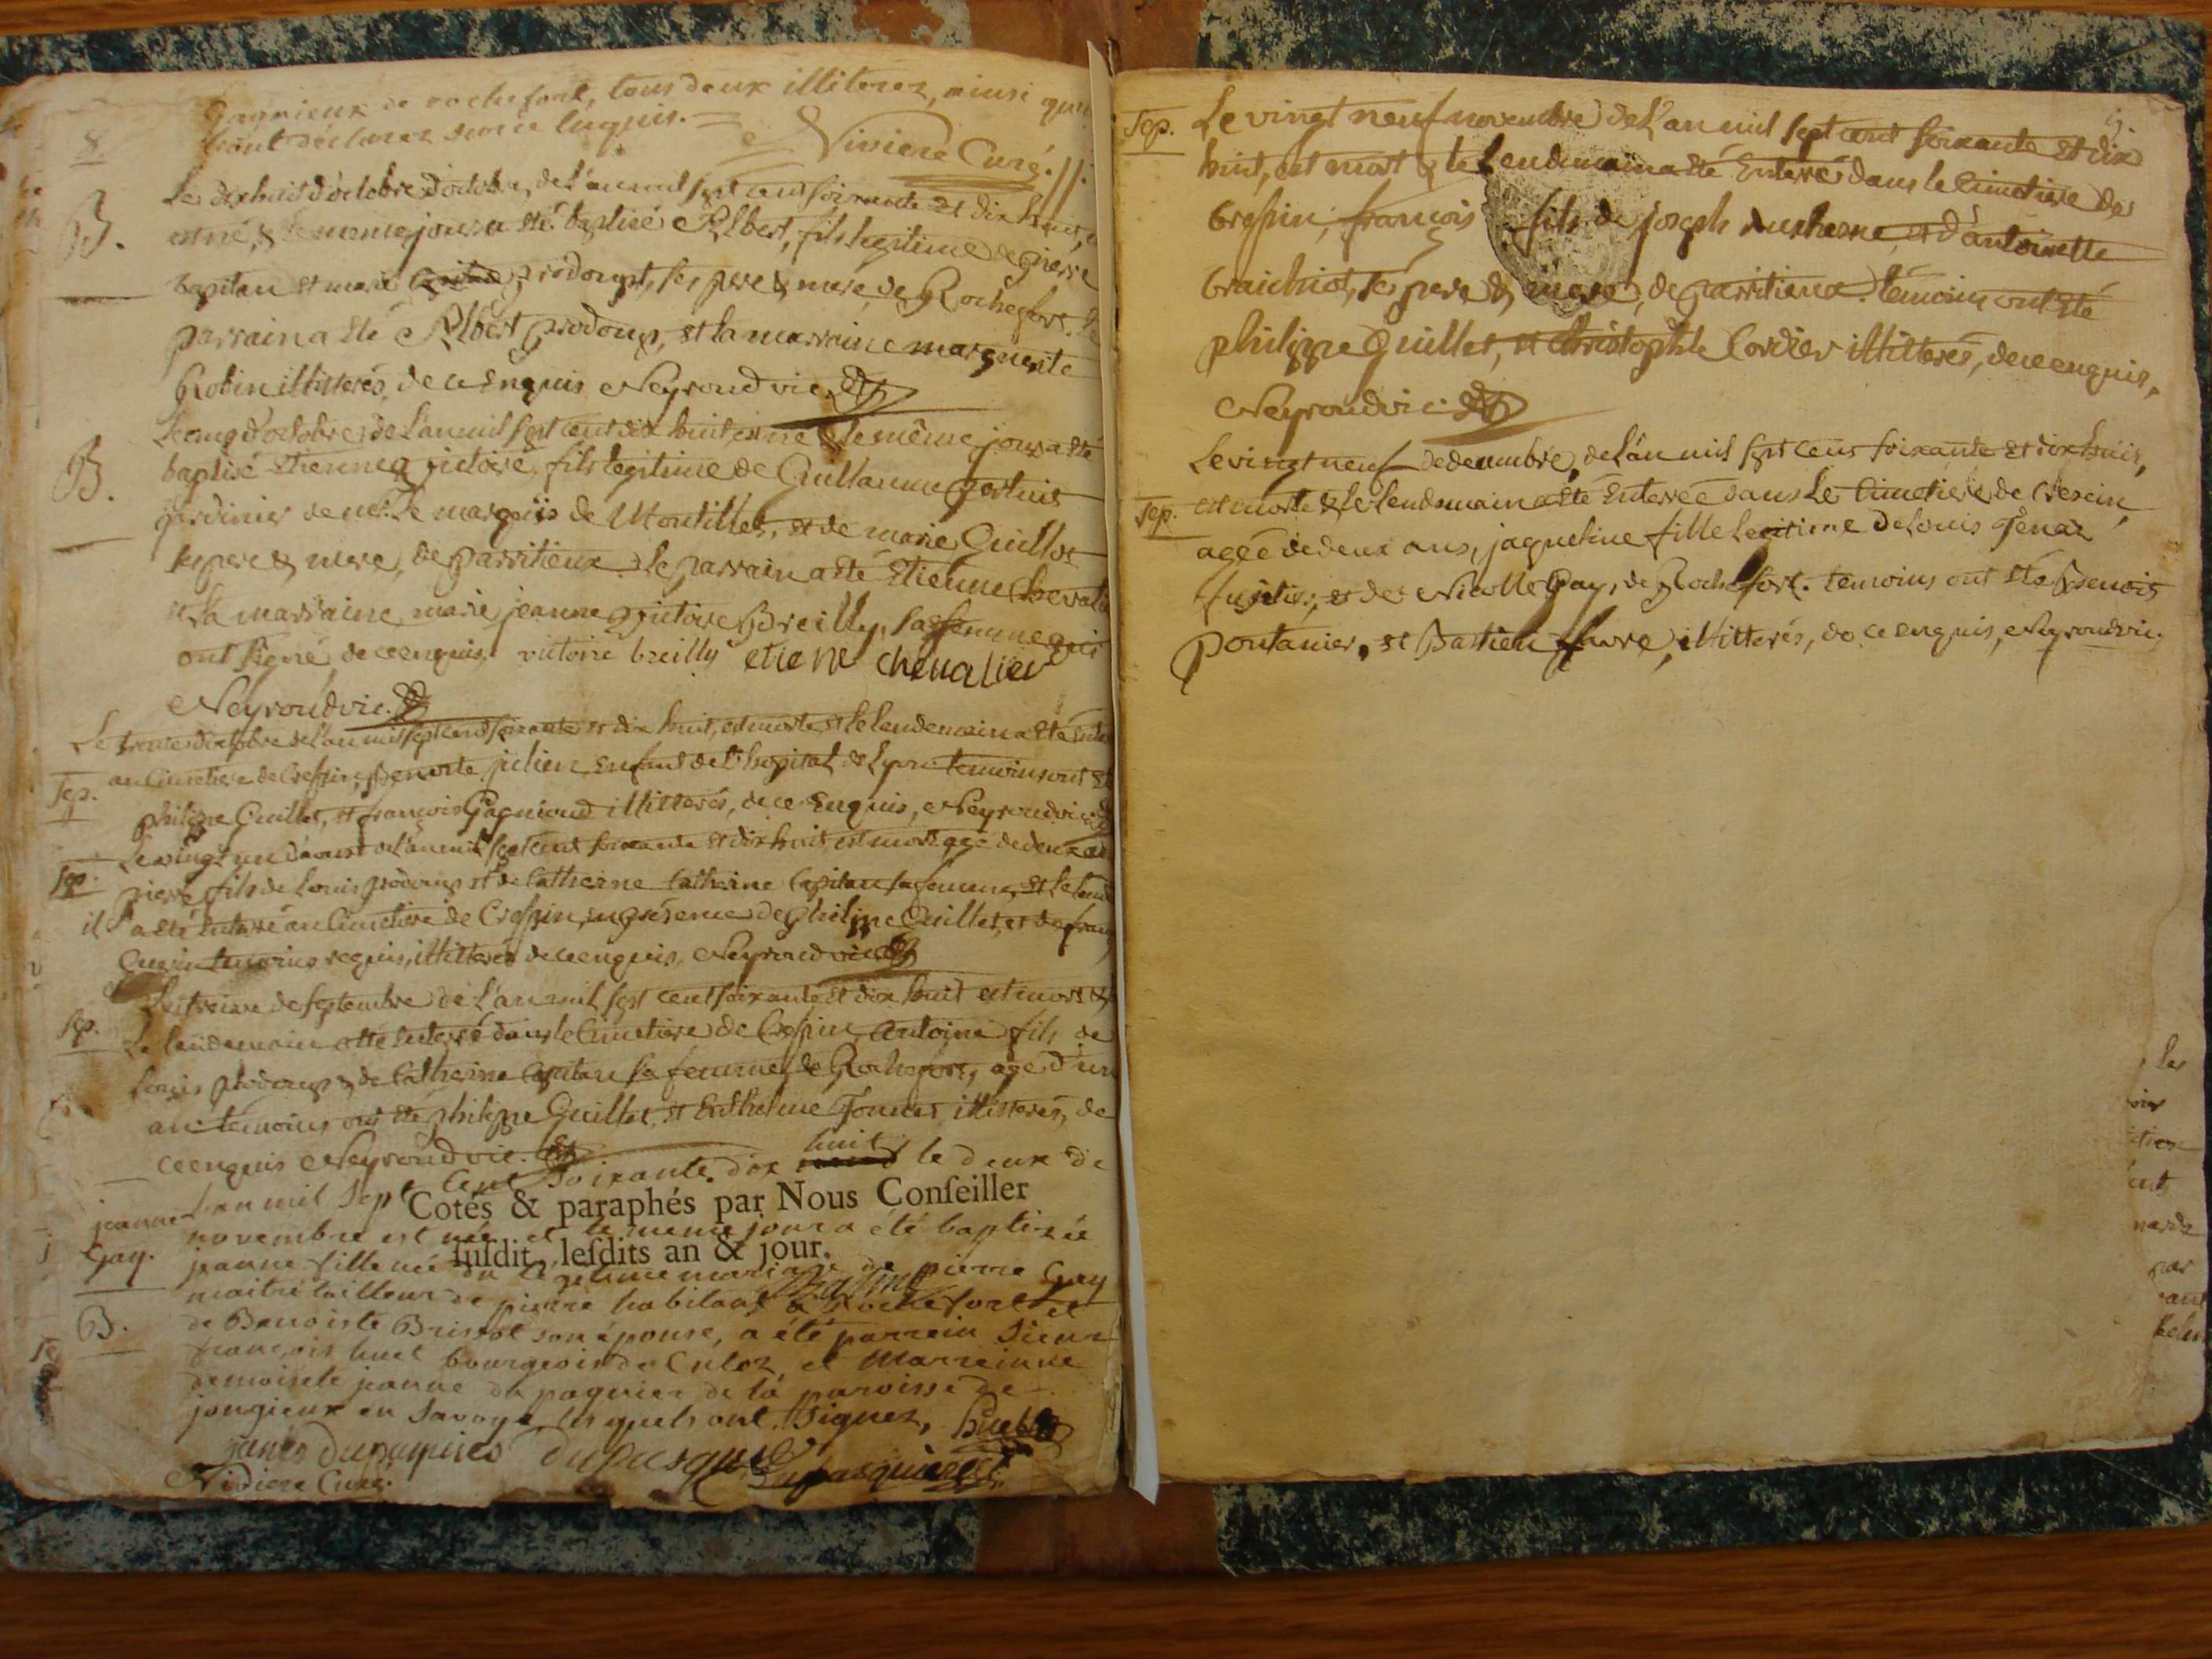 8.
de rochefort, tous deux illiterez, ainsi que
l'ont declarez sur ce enquis.
Curé.
B.
Le dixhuit d'octobre d'octobre, de l'an mil sept cent soixante et dix huit,
est né, & le meme jour a été baptisé Albert, fils legitime de pierre
Capitan et marie prodomp, ses pere & mere, de Rochefort. le
parrain a été Albert prodomp, et la marraine marguerite
Robin illitterés, de ce enquis Neyroud vic.
B.
Le cinq d'octobre de l'an mil sept cent dix huit, est né & le même jour a été
baptisé Etienne victoire, fils legitime de Guillaume
jardinier de mr. le marquis de Montillet, et de marie Guillot
ses pere & mere, de parritieux. Le parrain a été Etienne Chevalier
et la marraine marie jeanne victoire Breilly, sa femme qui
ont signé, de ce enquis. victoire breilly etiene chevalier
Neyroud vic.
Le treize d'octobre de l'an mil sept cent soixante et dix huit, est morte et le lendemain a été
Sep. au Cimetiere de Cressin, Benoite julien, enfant de l'hopital de Lyon temoins ont été
philippe Guillet, et françois Gagnioud illitterés, de ce enquis, Neyroud vic.
Sep. Le vingt un d'aoust de l'an mil sept cent soixante et dix huit est mort agé de deux ans
pierre fils de Louis prodomp et de Catherine Catherine Capitan sa femme, et le lend
il a été enterré au Cimetiere de Cressin, en présence de philippe Guillet, et de
temoins requis, illitterés de ce enquis, Neyroud vic.
Le treize de septembre de l'an mil sept cent soixante et dix huit est mort &
Sep. Le lendemain a été enterré dans le Cimetiere de Cressin, Antoine fils de
Louis prodomp & de Catherine Capitan sa femme, de Rochefort, agé d'un
an. temoins ont été philippe Guillet, et illitterés, de
ce enquis Neyroud vic.
L'an mil sept cent soixante dix huit le deux de
Cotés & paraphés par Nous Conſeiller
jeanne novembre est née et le meme jour a été baptisée
ſuſdit, leſdits an & jour.
Gay. jeanne fille née du legitime mariage de pierre Gay
maitre tailleur de pierre habitant a Rochefort et
B. de Benoiste Brissot son épouse, a été parrain Sieur
francois huet bourgeois de Culoz, et Marreinne
demoisele jeanne du paquier de la paroisse de
jongieux en Savoye, les quels ont signez, huet
Curé.
Sep. Le vingt neuf novembre de l'an mil sept cent soixante et dix
huit, est mort & le Lendemain a été Enterré dans le Cimetiere de
Cressin, françois fils de joseph duchesne, et d'antoinette
ses pere & mere, de parritieux. témoins ont été
philippe Guillet, et Christophle Cordier illitterés, de ce enquis,
Neyroud vic.
Le vingt neuf de decembre, de l'an mil sept cens soixante et dix huit,
Sep. est morte & le lendemain a été enterrée dans Le Cimetiere de Cressin,
agée de deux ans, jaqueline fille Legitime de Louis Tenaz
et de Nicolle Gay, de Rochefort. temoins ont été Benoit
pontanier, et Bastien favre, illitterés, de ce enquis, Neyroud vic.